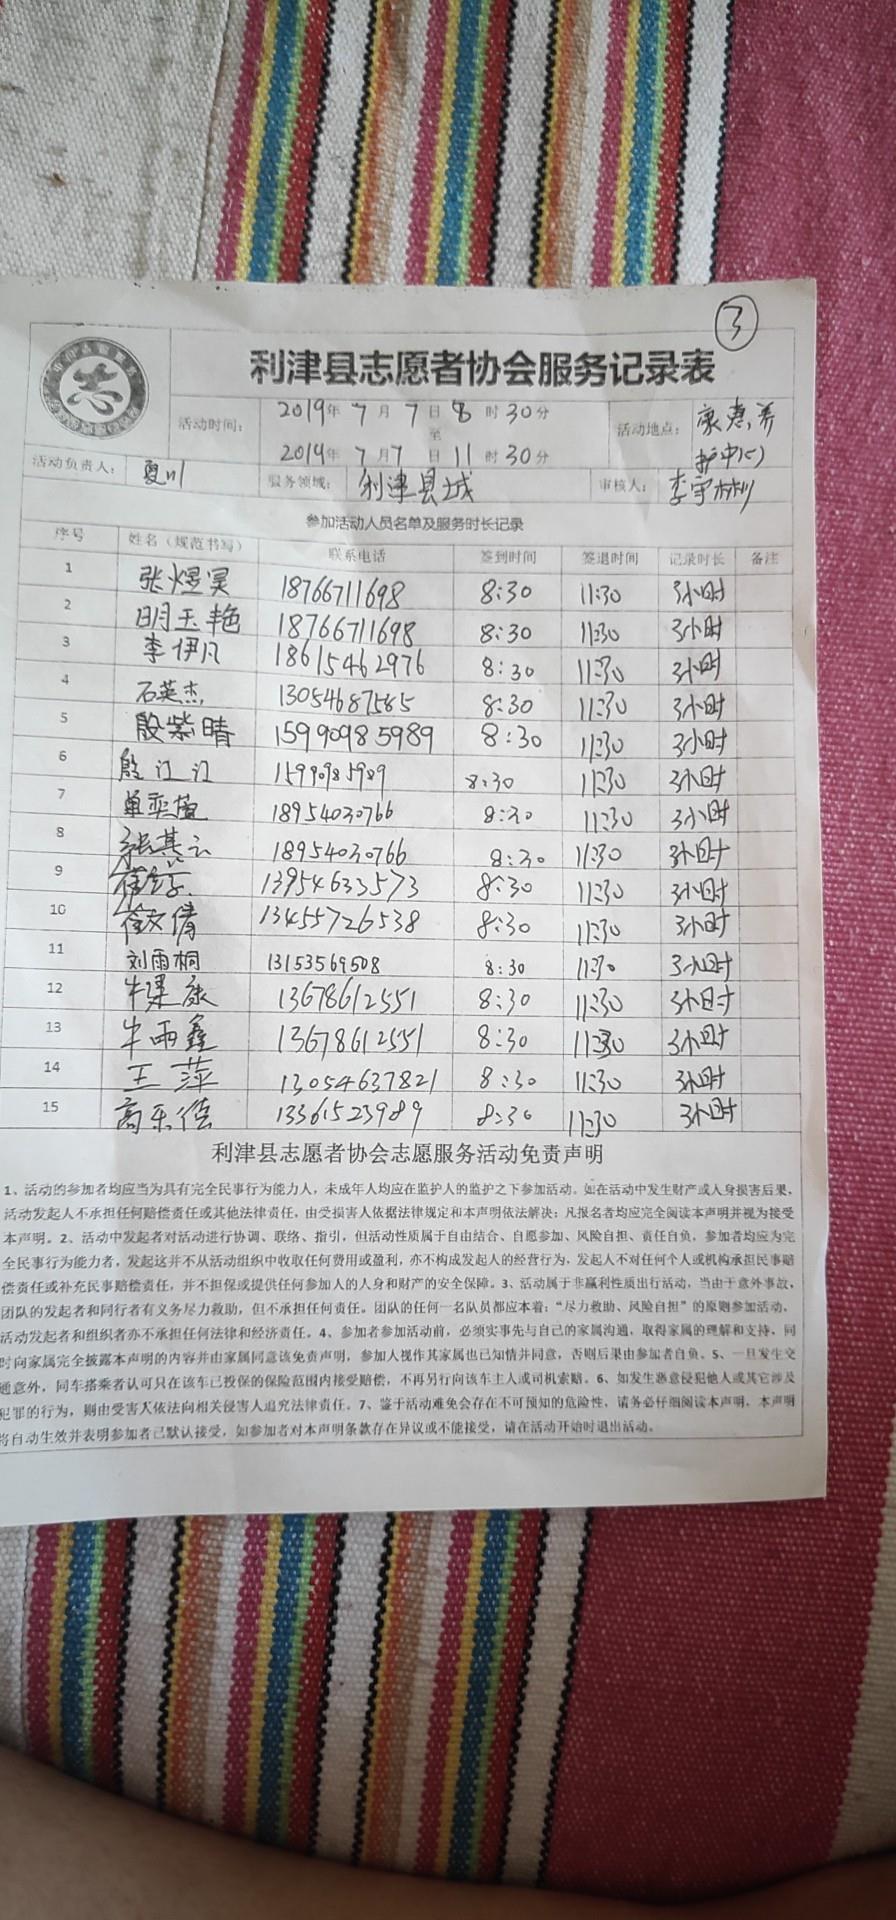 ③
利津县志愿者协会服务记录表
志
活动时间: 2019年 7月 7日 8时 30分
至
2019年 7月 7日 11时 30分
活动地点: 康惠养护中心
活动负责人: 夏川 服务领域: 利津县城 审核人: 李宇
参加活动人员名单及服务时长记录
序号 姓名（规范书写） 联系电话 签到时间 签退时间 记录时长 备注
1 张煜昊 18766711698 8:30 11:30 3小时
2 明玉艳 18766711698 8:30 11:30 3小时
3 李伊凡 18615462976 8:30 11:30 3小时
4 石英杰 13054687585 8:30 11:30 3小时
5 殷紫晴 15990985989 8:30 11:30 3小时
6 殷江江 15990985989 8:30 11:30 3小时
7 单奕萱 18954030766 8:30 11:30 3小时
8 张其云 18954030766 8:30 11:30 3小时
9 13954633573 8:30 11:30 3小时
10 崔文倩 13455726538 8:30 11:30 3小时
11 刘雨桐 13153569508 8:30 11:30 3小时
12 牛梁康 13678612551 8:30 11:30 3小时
13 牛雨鑫 13678612551 8:30 11:30 3小时
14 王萍 13054637821 8:30 11:30 3小时
15 高乐佳 13361523989 8:30 11:30 3小时
利津县志愿者协会志愿服务活动免责声明
1、活动的参加者均应当为具有完全民事行为能力人，未成年人均应在监护人的监护之下参加活动。如在活动中发生财产或人身损害后果，
活动发起人不承担任何赔偿责任或其他法律责任，由受损害人依据法律规定和本声明依法解决；凡报名者均应完全阅读本声明并视为接受
本声明。2、活动中发起者对活动进行协调、联络、指引，但活动性质属于自由结合、自愿参加、风险自担、责任自负，参加者均应为完
全民事行为能力者，发起这并不从活动组织中收取任何费用或盈利，亦不构成发起人的经营行为，发起人不对任何个人或机构承担民事赔
偿责任或补充民事赔偿责任，并不担保或提供任何参加人的人身和财产的安全保障。3、活动属于非赢利性质出行活动，当由于意外事故，
团队的发起者和同行者有义务尽力救助，但不承担任何责任。团队的任何一名队员都应本着：“尽力救助、风险自担”的原则参加活动，
活动发起者和组织者亦不承担任何法律和经济责任。4、参加者参加活动前，必须实事先与自己的家属沟通，取得家属的理解和支持，同
时向家属完全披露本声明的内容并由家属同意该免责声明，参加人视作其家属也已知情并同意，否则后果由参加者自负。5、一旦发生交
通意外，同车搭乘者认可只在该车已投保的保险范围内接受赔偿，不再另行向该车主人或司机索赔。6、如发生恶意侵犯他人或其它涉及
犯罪的行为，则由受害人依法向相关侵害人追究法律责任。7、鉴于活动难免会存在不可预知的危险性，请务必仔细阅读本声明，本声明
将自动生效并表明参加者已默认接受，如参加者对本声明条款存在异议或不能接受，请在活动开始时退出活动。